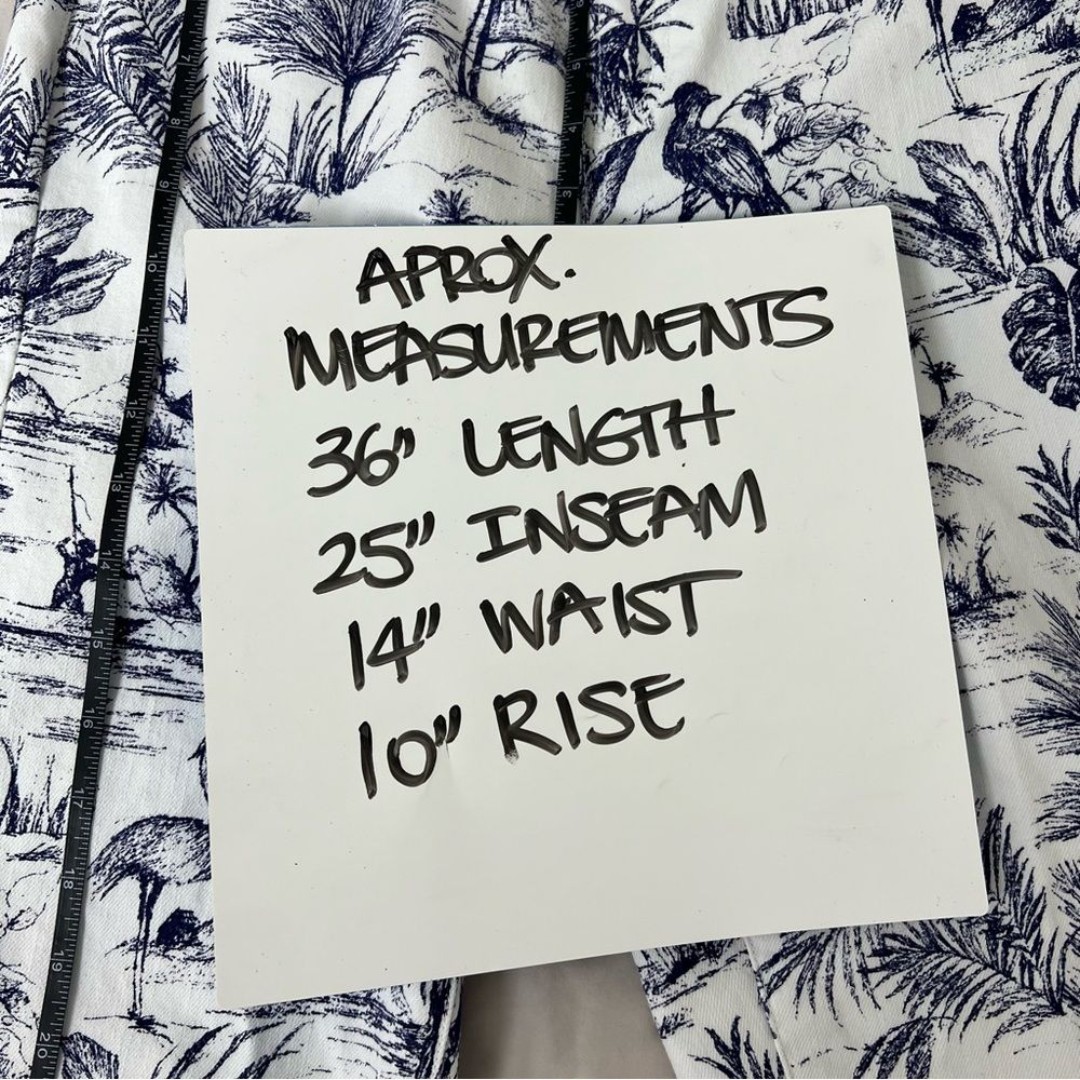 APROX.
MEASUREMENTS
36" LENGTH
25" INSEAM
14" WAIST
10" RISE
7
8
9
10
11
12
13
14
15
16
17
18
19
20
5
4
3